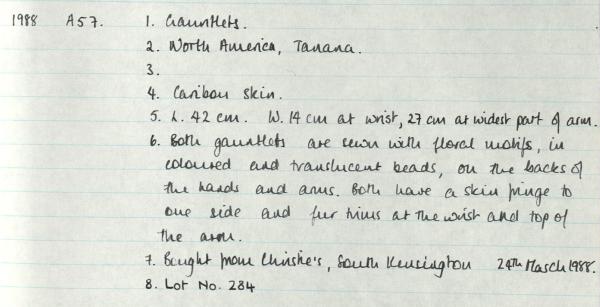 1988 A57. 1. Gauntlets.
2. North America, Tanana.
3.
4. Caribou skin.
5. L. 42 cm. W. 14 cm at wrist, 27 cm at widest part of arm.
6. Both gauntlets are sewn with floral motifs, in
coloured and translucent beads, on the backs of
the hands and arms. Both have a skin fringe to
one side and fur trims at the wrist and top of
the arm.
7. Bought from Christie's, South Kensington 24th March 1988.
8. Lot No. 284